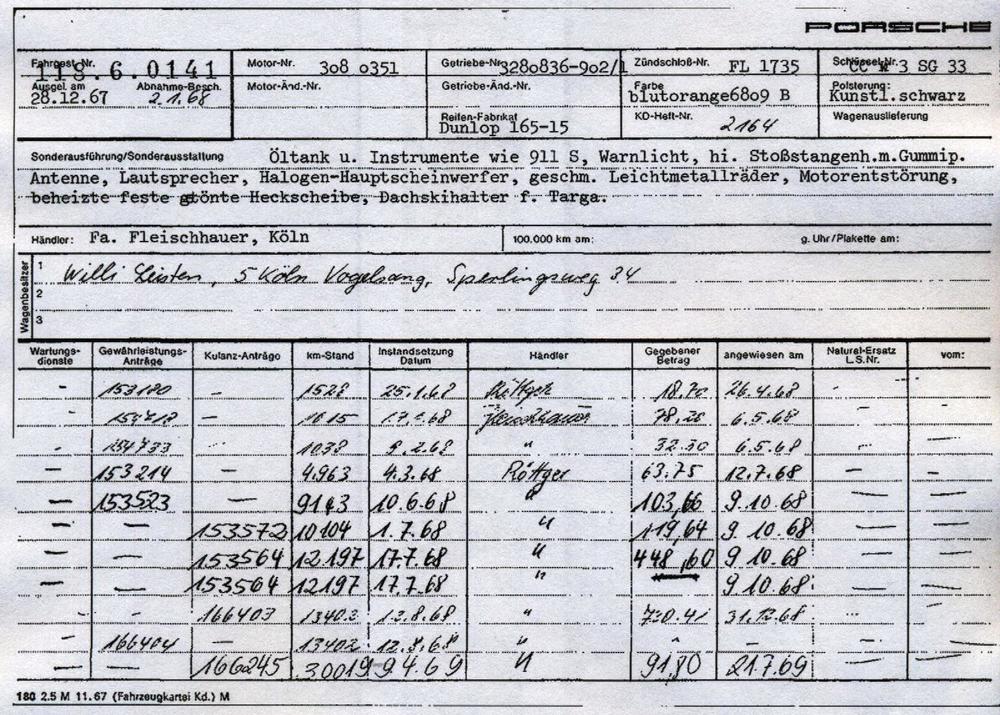 PORSCHE
Fahrgest.-Nr. 118.6.0141 Motor-Nr. 308 0351 Getriebe-Nr. 3280836-902/1 Zündschloß-Nr. FL 1735 Schlüssel-Nr. SG 33
Ausgel. am 28.12.67 Abnahme-Besch. 2.1.68 Motor-Änd.-Nr. Getriebe-Änd.-Nr. Farbe blutorange6809 B Polsterung: Kunstl.schwarz
Reifen-Fabrikat Dunlop 165-15 KD-Heft-Nr. 2164 Wagenauslieferung
Sonderausführung/Sonderausstattung Öltank u. Instrumente wie 911 S, Warnlicht, hi. Stoßstangenh.m.Gummip.
Antenne, Lautsprecher, Halogen-Hauptscheinwerfer, geschm. Leichtmetallräder, Motorentstörung,
beheizte feste gtönte Heckscheibe, Dachskihalter f. Targa.
Händler: Fa. Fleischhauer, Köln 100.000 km am: g. Uhr/Plakette am:
Wagenbesitzer
1 Willi Leisten, 5 Köln Vogelsang, Sperlingsweg 34
2
3
Wartungsdienste Gewährleistungs-Anträge Kulanz-Anträge km-Stand Instandsetzung Datum Händler Gegebener Betrag angewiesen am Natural-Ersatz L.S.Nr. vom:
- 153180 - 1528 25.1.68 Röttger 18.70 26.4.68 - -
- - 1015 Fleischhauer 78.20 6.5.68 - -
- 154733 - 1038 9.2.68 " 32.30 6.5.68 - -
- 153214 - 4.963 4.3.68 Röttger 63.75 12.7.68 - -
- 153523 - 9143 10.6.68 " 103,66 9.10.68 - -
- - 153572 10104 1.7.68 " 119,64 9.10.68 - -
- - 153564 12.197 17.7.68 " 448,60 9.10.68 - -
- - 153564 12197 17.7.68 " 9.10.68 - -
- - 166403 13402 " 730.41 31.12.68 - -
- 166404 - 13402 12.8.68 " - - - -
- - 166245 30019 9.4.69 " 91,80 21.7.69 - -
180 2.5 M 11.67 (Fahrzeugkartei Kd.) M